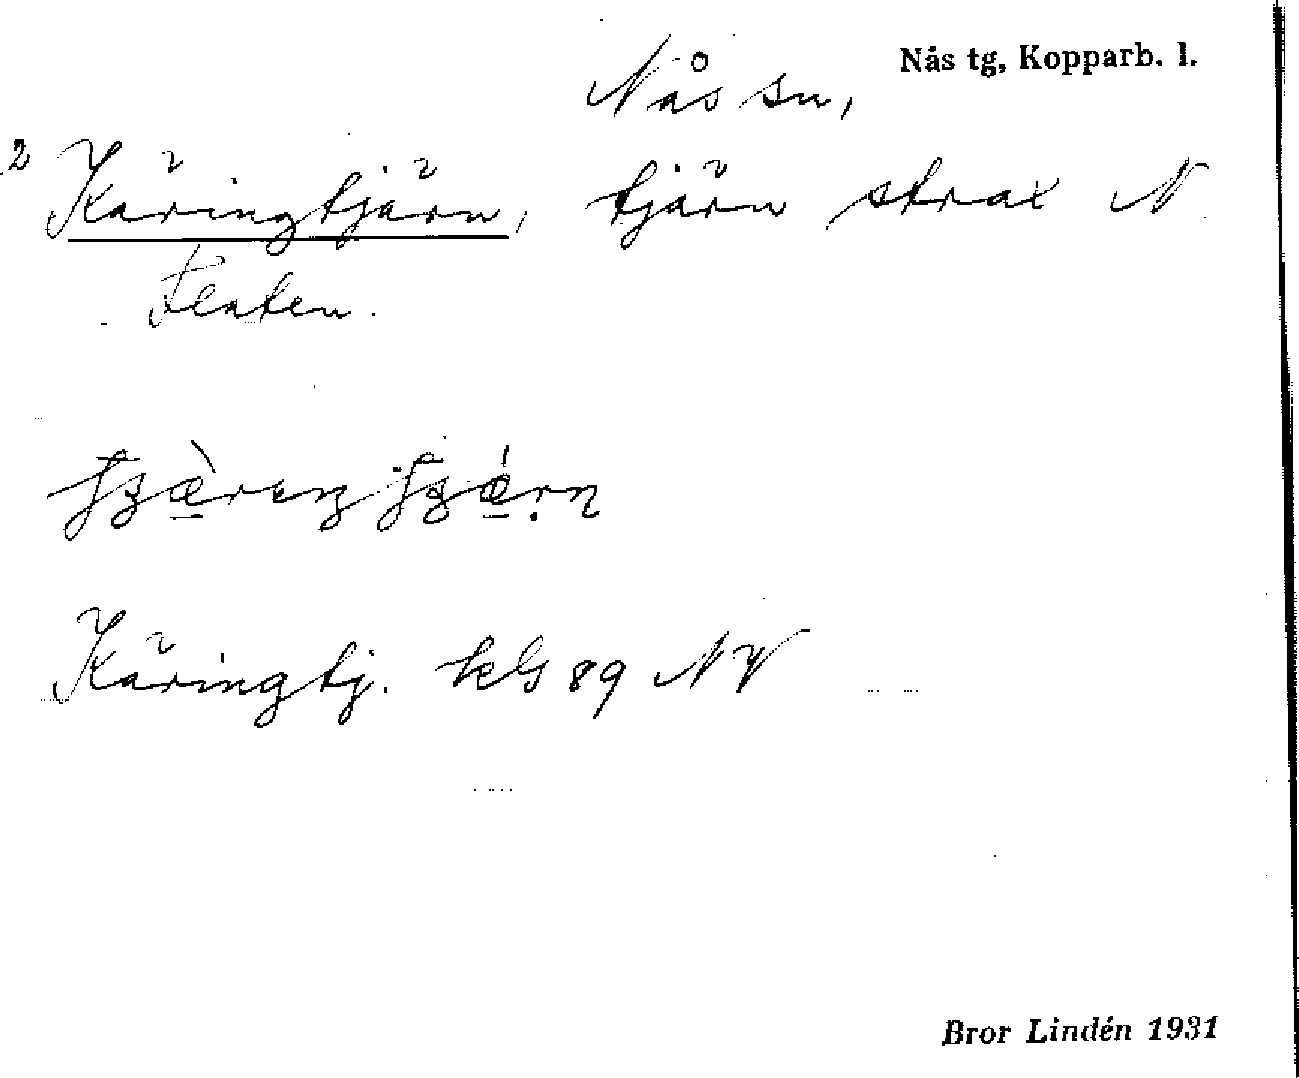 Nås tg, Kopparb. l.
Nås sn,
2 Käringtjärn, tjärn strax N
Flaten.
Käringtj. kbl 89 NV
Bror Lindén 1931